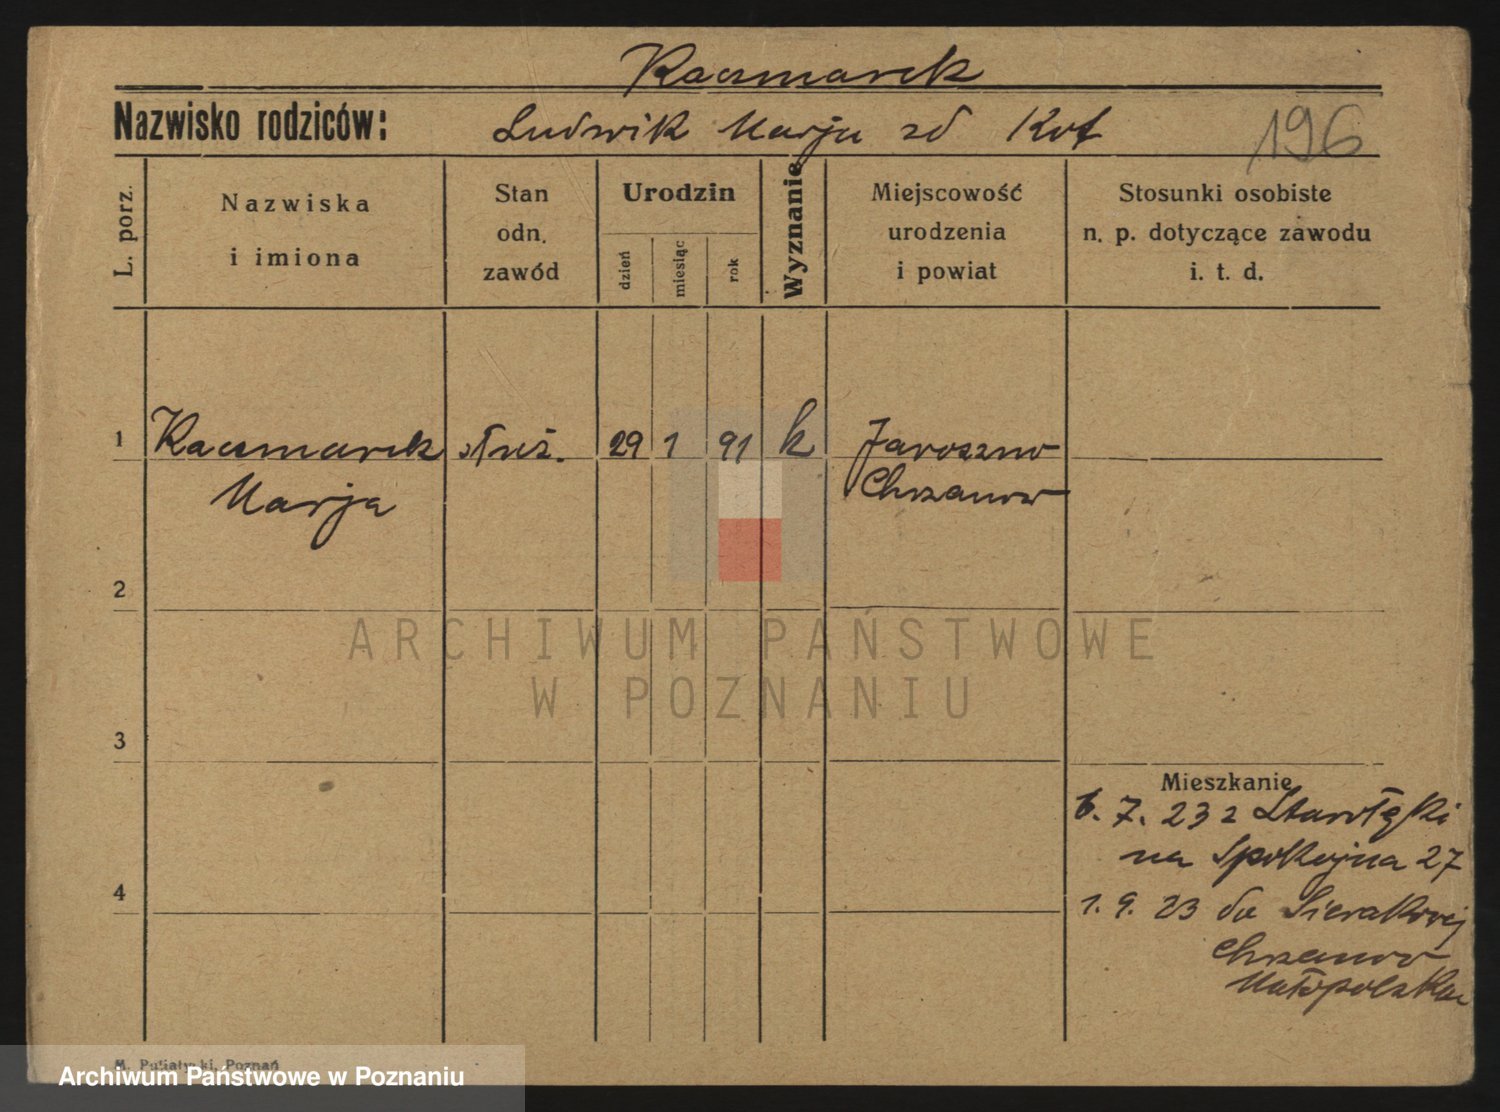 Kaczmarek
Nazwisko rodziców: Ludwik Marja zd Kot 196
L. porz.
Nazwiska i imiona
Stan odn. zawód
Urodzin
dzień
miesiąc
rok
Wyznanie
Miejscowość urodzenia i powiat
Stosunki osobiste n. p. dotyczące zawodu i. t. d.
1 Kaczmarek służ. 29 1 91 k
Marja Chrzanow
2
ARCHIWUM PAŃSTWOWE
W POZNANIU
3
Mieszkanie
6. 7. 23 z Starołęki
na Spokojna 27
4
1. 9. 23 do
Chrzanow
Małopolska
Poznań
Archiwum Państwowe w Poznaniu